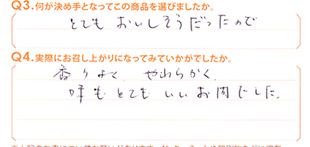 Q3.何が決め手となってこの商品を選びましたか。
とても おいしそうだったので
Q4.実際にお召し上がりになってみていかがでしたか。
香りよくて やわらかく、
味も とても いい お肉でした。